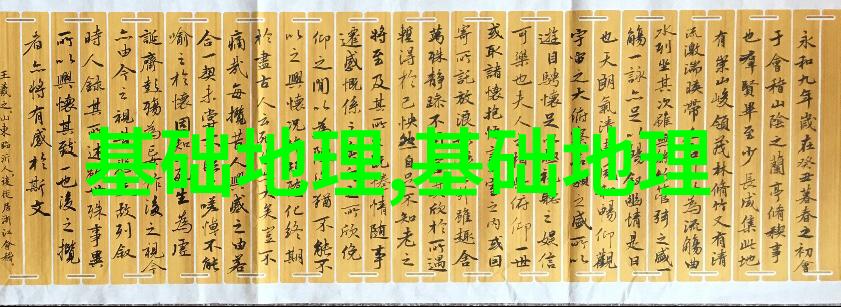 永和九年歲在癸丑暮春之初會
于會稽山陰之蘭亭脩禊事
也群賢畢至少長咸集此地
有崇山峻領茂林脩竹又有清
流激湍暎帶為流觴曲
水列坐其次雖無絲竹管弦之盛一
觴一詠亦足以暢敘幽情是日
也天朗氣清暢仰觀
宇宙之大俯之盛所以
遊目騁懷足視聽之娛信
可樂也夫人俯仰一世
或取諸懷抱一室之內或因
寄所託放浪外雖趣舍
萬殊靜躁不欣於所遇
暫得於己快然自足不知老之
將至及其所既惓情隨事
遷感慨係之所欣俛
仰之間以為猶不能不
以之興懷況化終期
於盡古人云矣豈不
痛哉每攬昔人興感之由若
合一契未嘗嗟悼不能
喻之於懷固知生為虛
誕齊彭殤為妄作後之視今
亦由今之視故列敘
時人錄其所述殊事異
所以興懷其致一也後之攬
者亦將有感於斯文
王羲之山東臨沂人後徙居浙江會稽
基础地理,基础地理